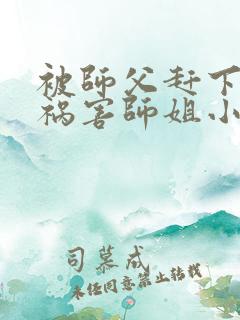 被師父赶下
祸害師姐小
司慕成
未任同意禁止转载